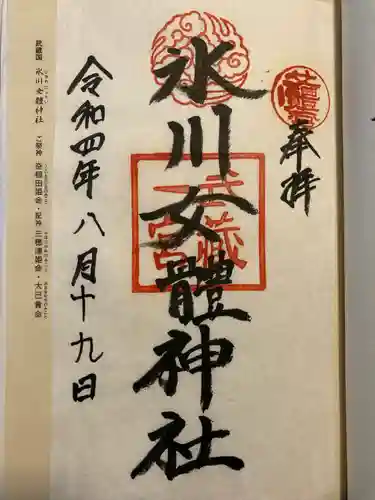 奉拝
武蔵
一宮
氷川女體神社
令和四年八月十九日
武蔵国 氷川女體神社 ご祭神 奇稲田姫命・配神 三穂津姫命・大己貴命